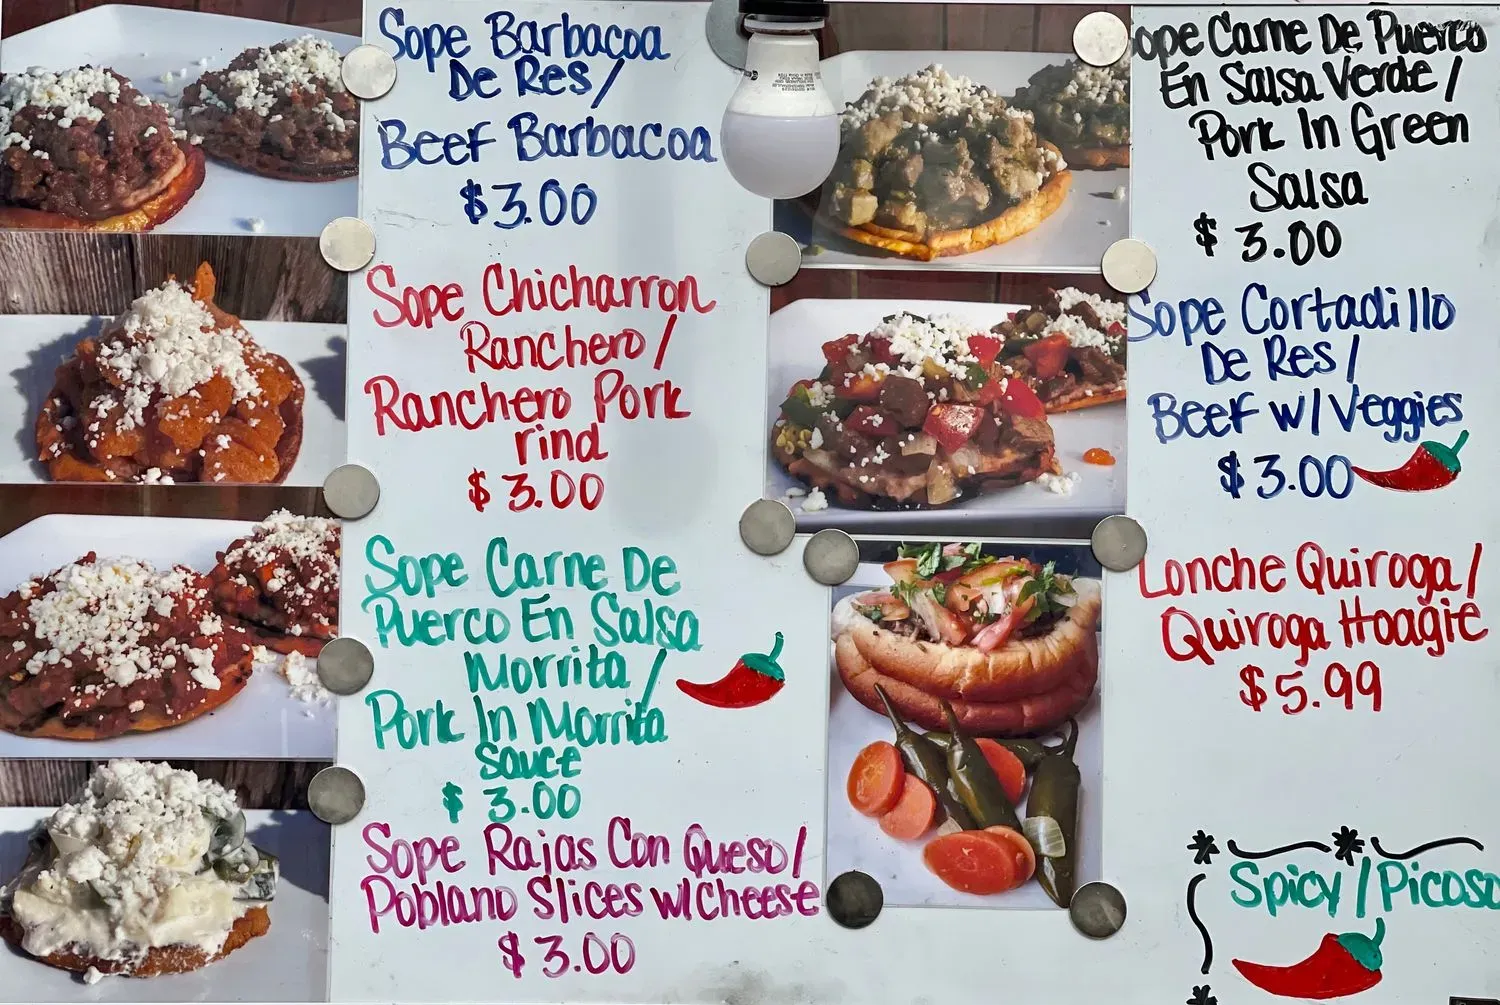 Sope Barbacoa
De Res/
Beef Barbacoa
$3.00
Sope Chicharron
Ranchero/
Ranchero Pork
rind
$3.00
Sope Carne De
Puerco En Salsa
Morrita/
Pork In Morrita
sauce
$3.00
Sope Rajas Con Queso/
Poblano Slices w/Cheese
$3.00
Sope Carne De Puerco
En Salsa Verde/
Pork In Green
Salsa
$3.00
Sope Cortadillo
De Res/
Beef w/Veggies
$3.00
Lonche Quiroga/
Quiroga Hoagie
$5.99
Spicy/Picoso